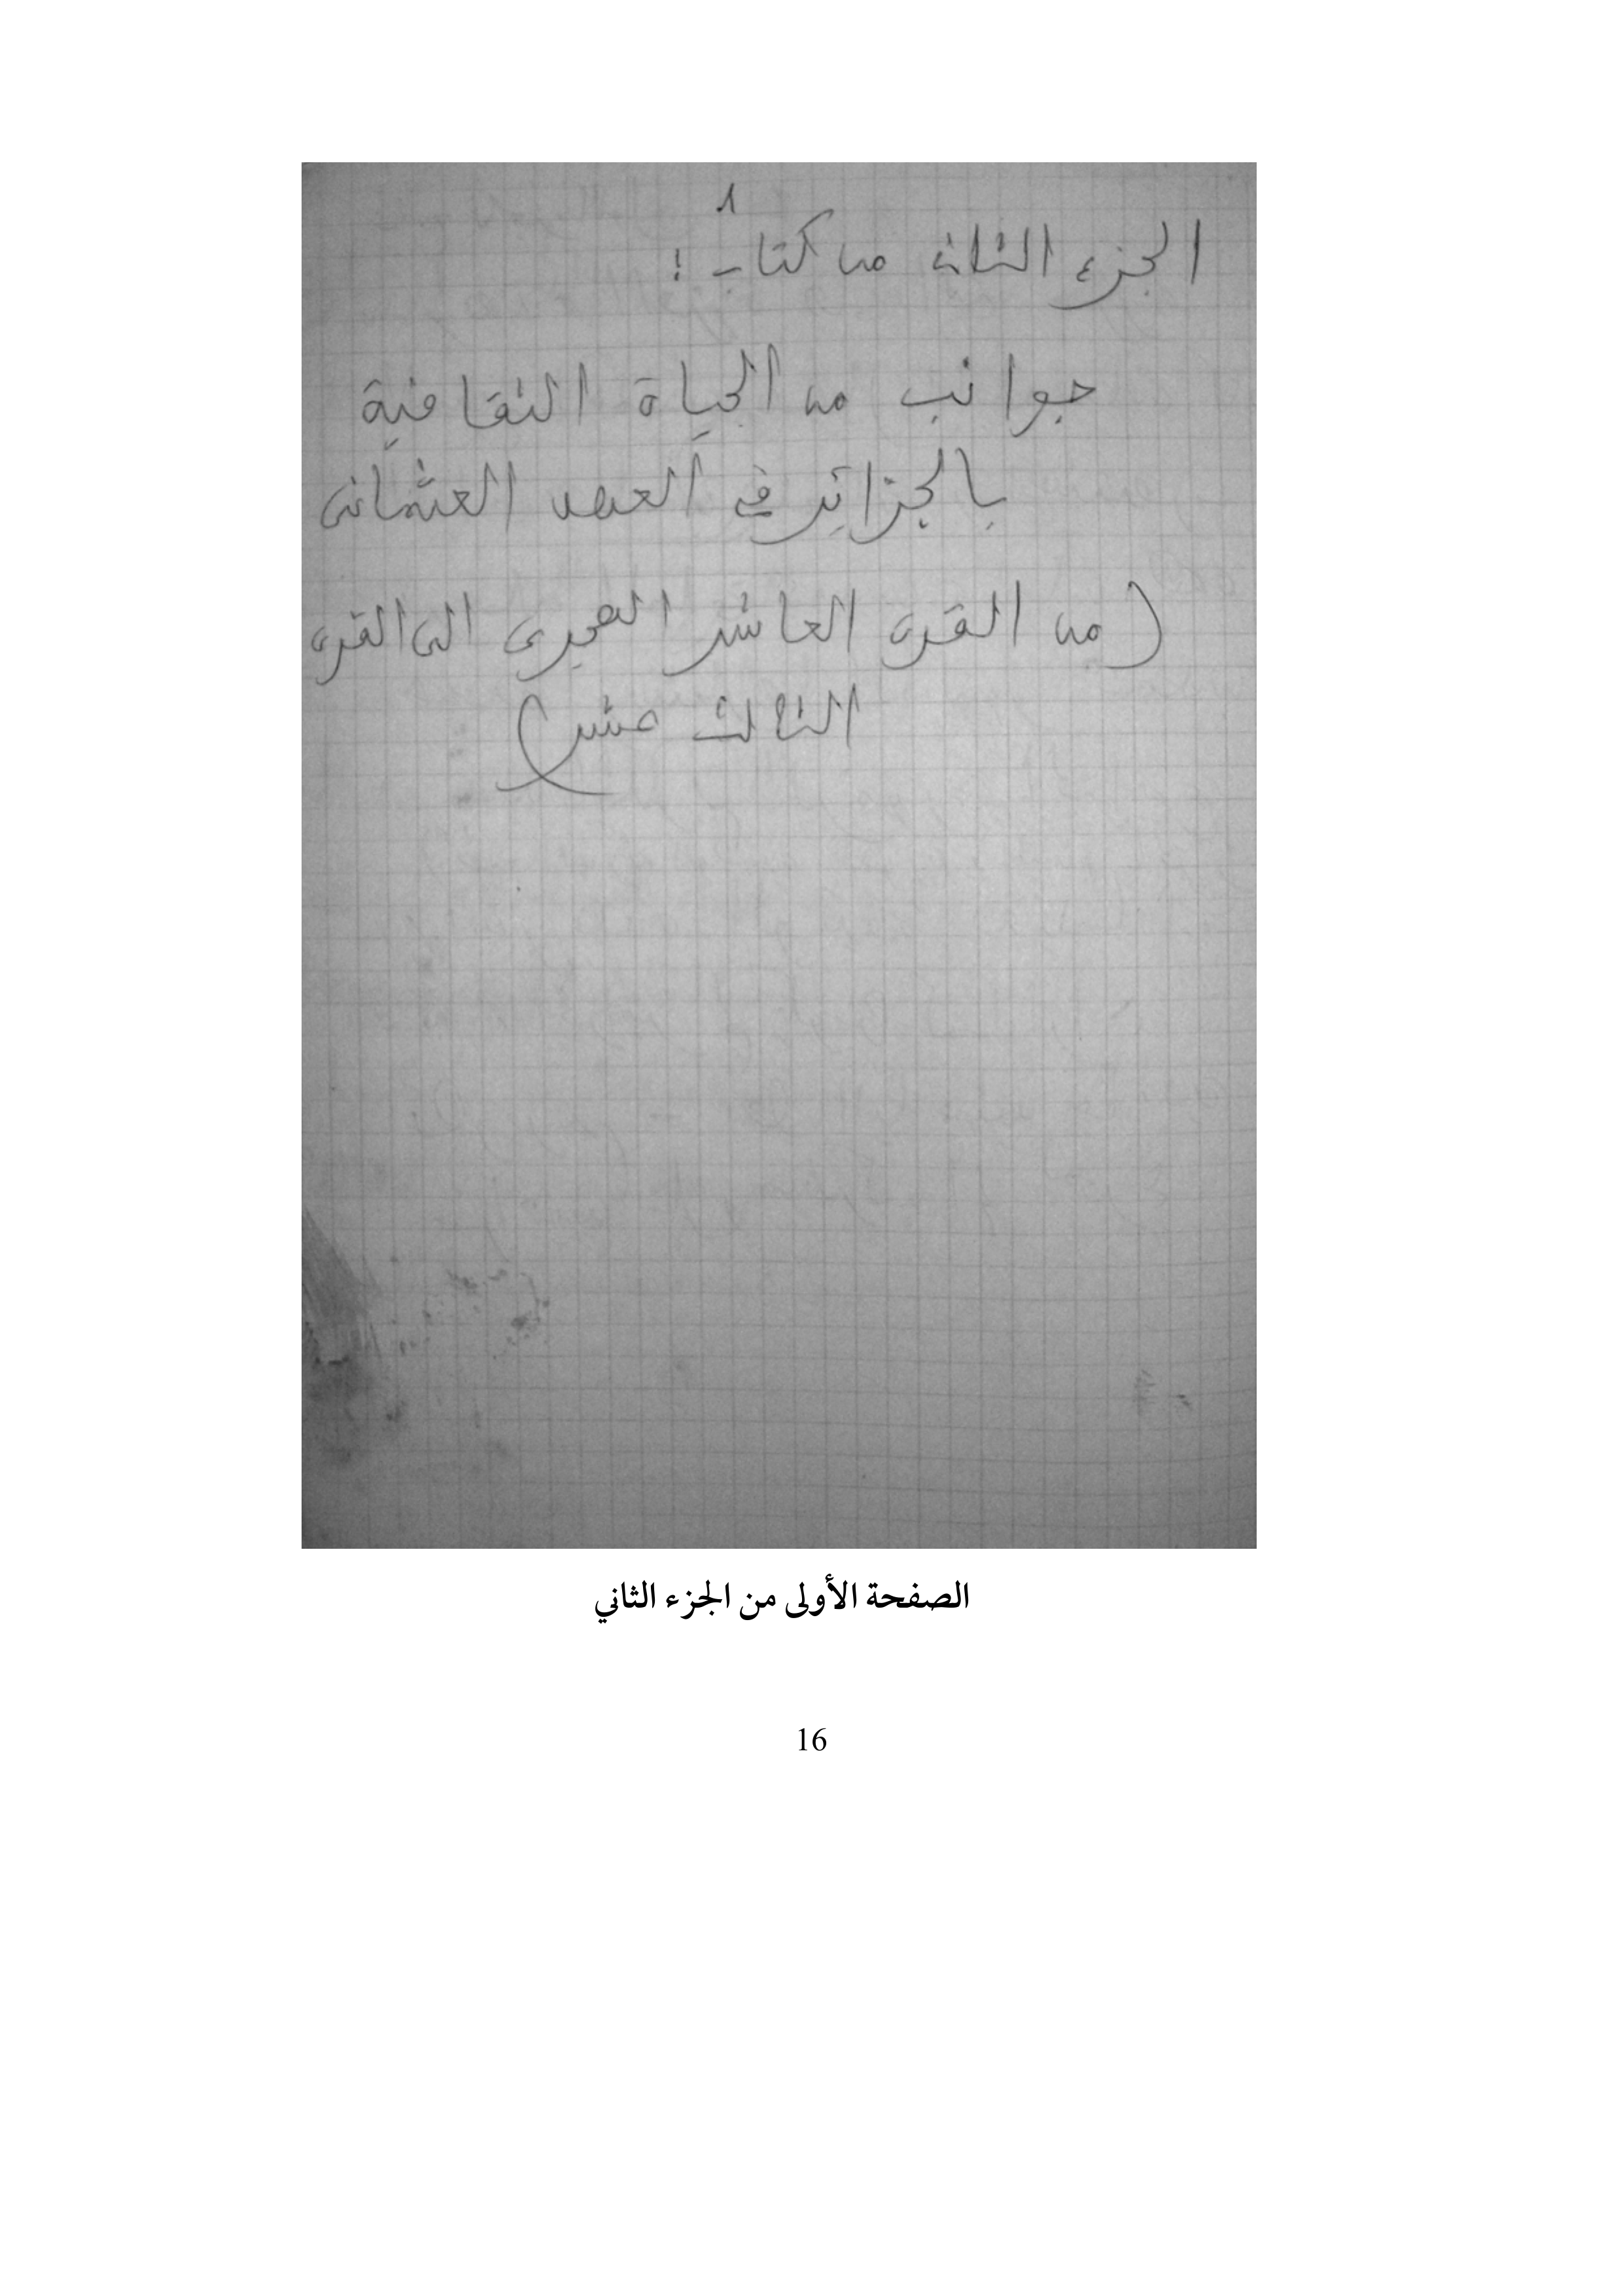 1
الجزء الثانى من كتاب :
جوانب من الحياة الثقافية
بالجزائر في العهد العثمانى
(من القرن العاشر الهجرى الى القرن
الثالث عشر)
الصفحة الأولى من الجزء الثاني
16